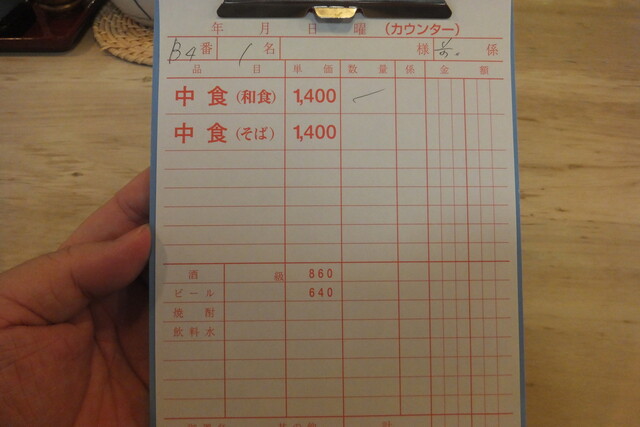 年 月 日 曜 (カウンター)
B4番 1名 様 係
品 目 単 価 数 量 係 金 額
中 食 (和食) 1,400
中 食 (そば) 1,400
酒 860
ビール 640
焼 酎
飲料水